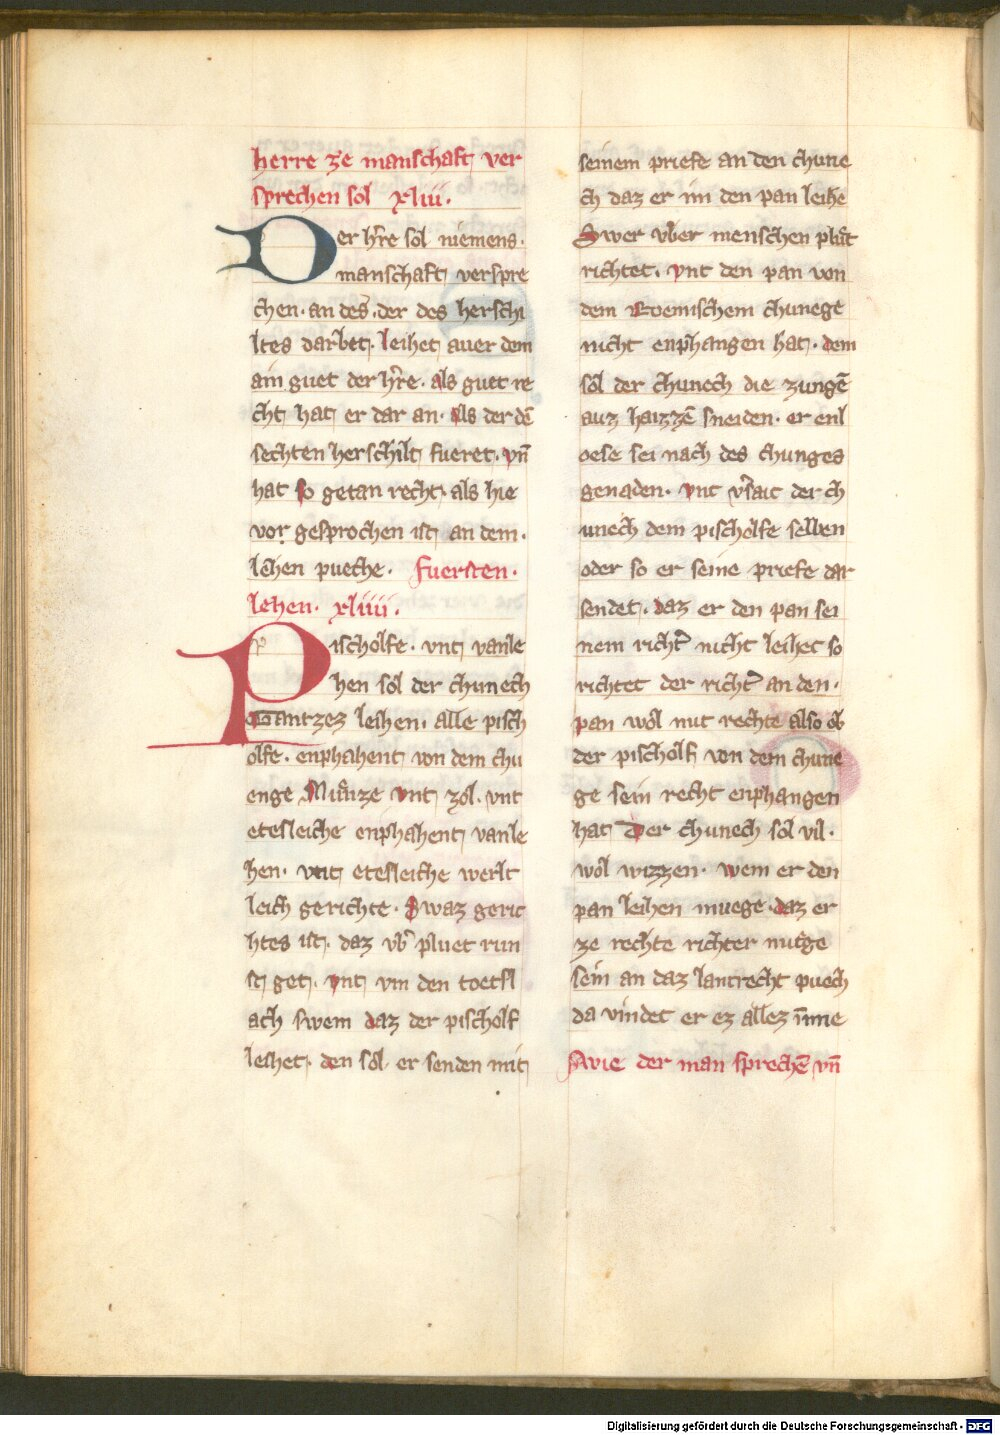 herre ze manschaft ver
sprechen sol xliii.
Der hr̄e sol niemens.
manschaft verspre
chen. an des. der des herschi
ltes darbet. leihet auer dem
ain guet der hr̄e. als guet re
cht hat er dar an. als der dē
sechten herschilt fueret. vn̄
hat so getan recht. als hie
vor gesprochen ist an dem.
lehen pueche. fuersten.
lehen. xliiii.
Pischolfe. vnt vanle
hen sol der chunech
Gantzez leihen. alle pisch
olfe. enphahent von dem chu
enge Muͤnze vnt zol. vnt
etesleiche enphahent vanle
hen. vnt etesleiche werlt
leich gerichte. Swaz geric
htes ist. daz vb̄ pluet run
st get. vnt vm den toetsl
ach swem daz der pischolf
leihet. den sol er senden mit
seinem priefe an den chune
ch daz er im den pan leihe
Swer vber menschen pluͤt
richtet. vnt den pan von
dem Roemischem chunege
nicht enphangen hat. dem
sol der chunech die zungē
auz haizzē sneiden. er enl
oese sei nach des chunges
genaden. vnt vs̄ait der ch
unech dem pischolfe selben
oder so er seine priefe dar
sendet. daz er den pan sei
nem richt̄ nicht leihet so
richtet der richt̄ an den.
pan wol mit rechte also ob
der pischolf von dem chune
ge sein recht enphangen
hat Der chunech sol vil.
wol wizzen. wem er den
pan leihen muege. daz er
ze rechte richter muͤge
sein an daz lantrecht puech
da vindet er ez allez īnne
Swie der man sprechē vn̄
Digitalisierung gefördert durch die Deutsche Forschungsgemeinschaft - DFG